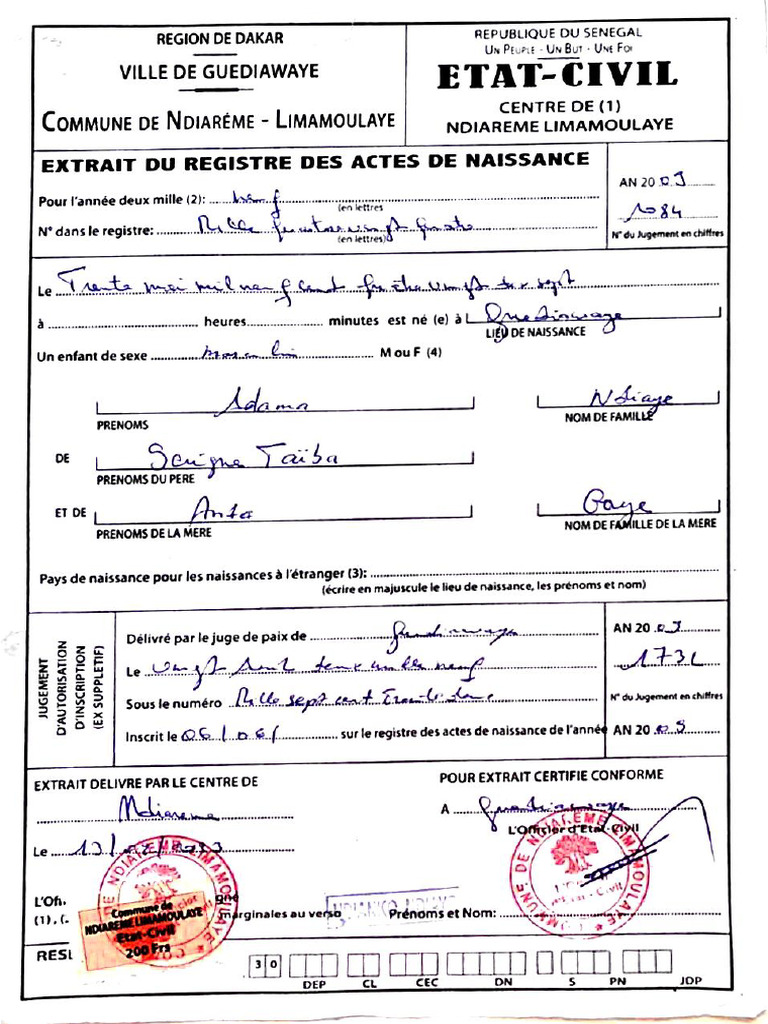 REGION DE DAKAR
VILLE DE GUEDIAWAYE
COMMUNE DE NDIARÉME - LIMAMOULAYE
REPUBLIQUE DU SENEGAL
UN PEUPLE - UN BUT - UNE FOI
ETAT-CIVIL
CENTRE DE (1)
NDIAREME LIMAMOULAYE
EXTRAIT DU REGISTRE DES ACTES DE NAISSANCE
AN 20 09
Pour l'année deux mille (2): neuf
(en lettres
1084
N° dans le registre: Mille quatre vingt quatre
(en lettres)
N° du Jugement en chiffres
Le Trente mai mil neuf cent quatre vingt dix sept
à heures minutes est né (e) à Guediawaye
LIEU DE NAISSANCE
Un enfant de sexe masculin M ou F (4)
Adama Ndiaye
PRENOMS NOM DE FAMILLE
DE Serigne Taïba
PRENOMS DU PERE
ET DE Anta Gaye
PRENOMS DE LA MERE NOM DE FAMILLE DE LA MERE
Pays de naissance pour les naissances à l'étranger (3):
(écrire en majuscule le lieu de naissance, les prénoms et nom)
JUGEMENT
D'AUTORISATION
D'INSCRIPTION
(EX SUPPLETIF)
Délivré par le juge de paix de Guediawaye AN 20 09
Le vingt deux mille neuf
Sous le numéro Mille sept cent N° du Jugement en chiffres
Inscrit le 06/06/ sur le registre des actes de naissance de l'année AN 20 09
EXTRAIT DELIVRE PAR LE CENTRE DE
Ndiareme
Le 13/
POUR EXTRAIT CERTIFIE CONFORME
A Guediawaye
L'Officier d'Etat-Civil
COMMUNE DE NDIAREME LIMAMOULAYE
Commune de
NDIAREME LIMAMOULAYE
Etat-Civil
200 Frs
marginales au verso Prénoms et Nom:
30
DEP CL CEC DN S PN JDP